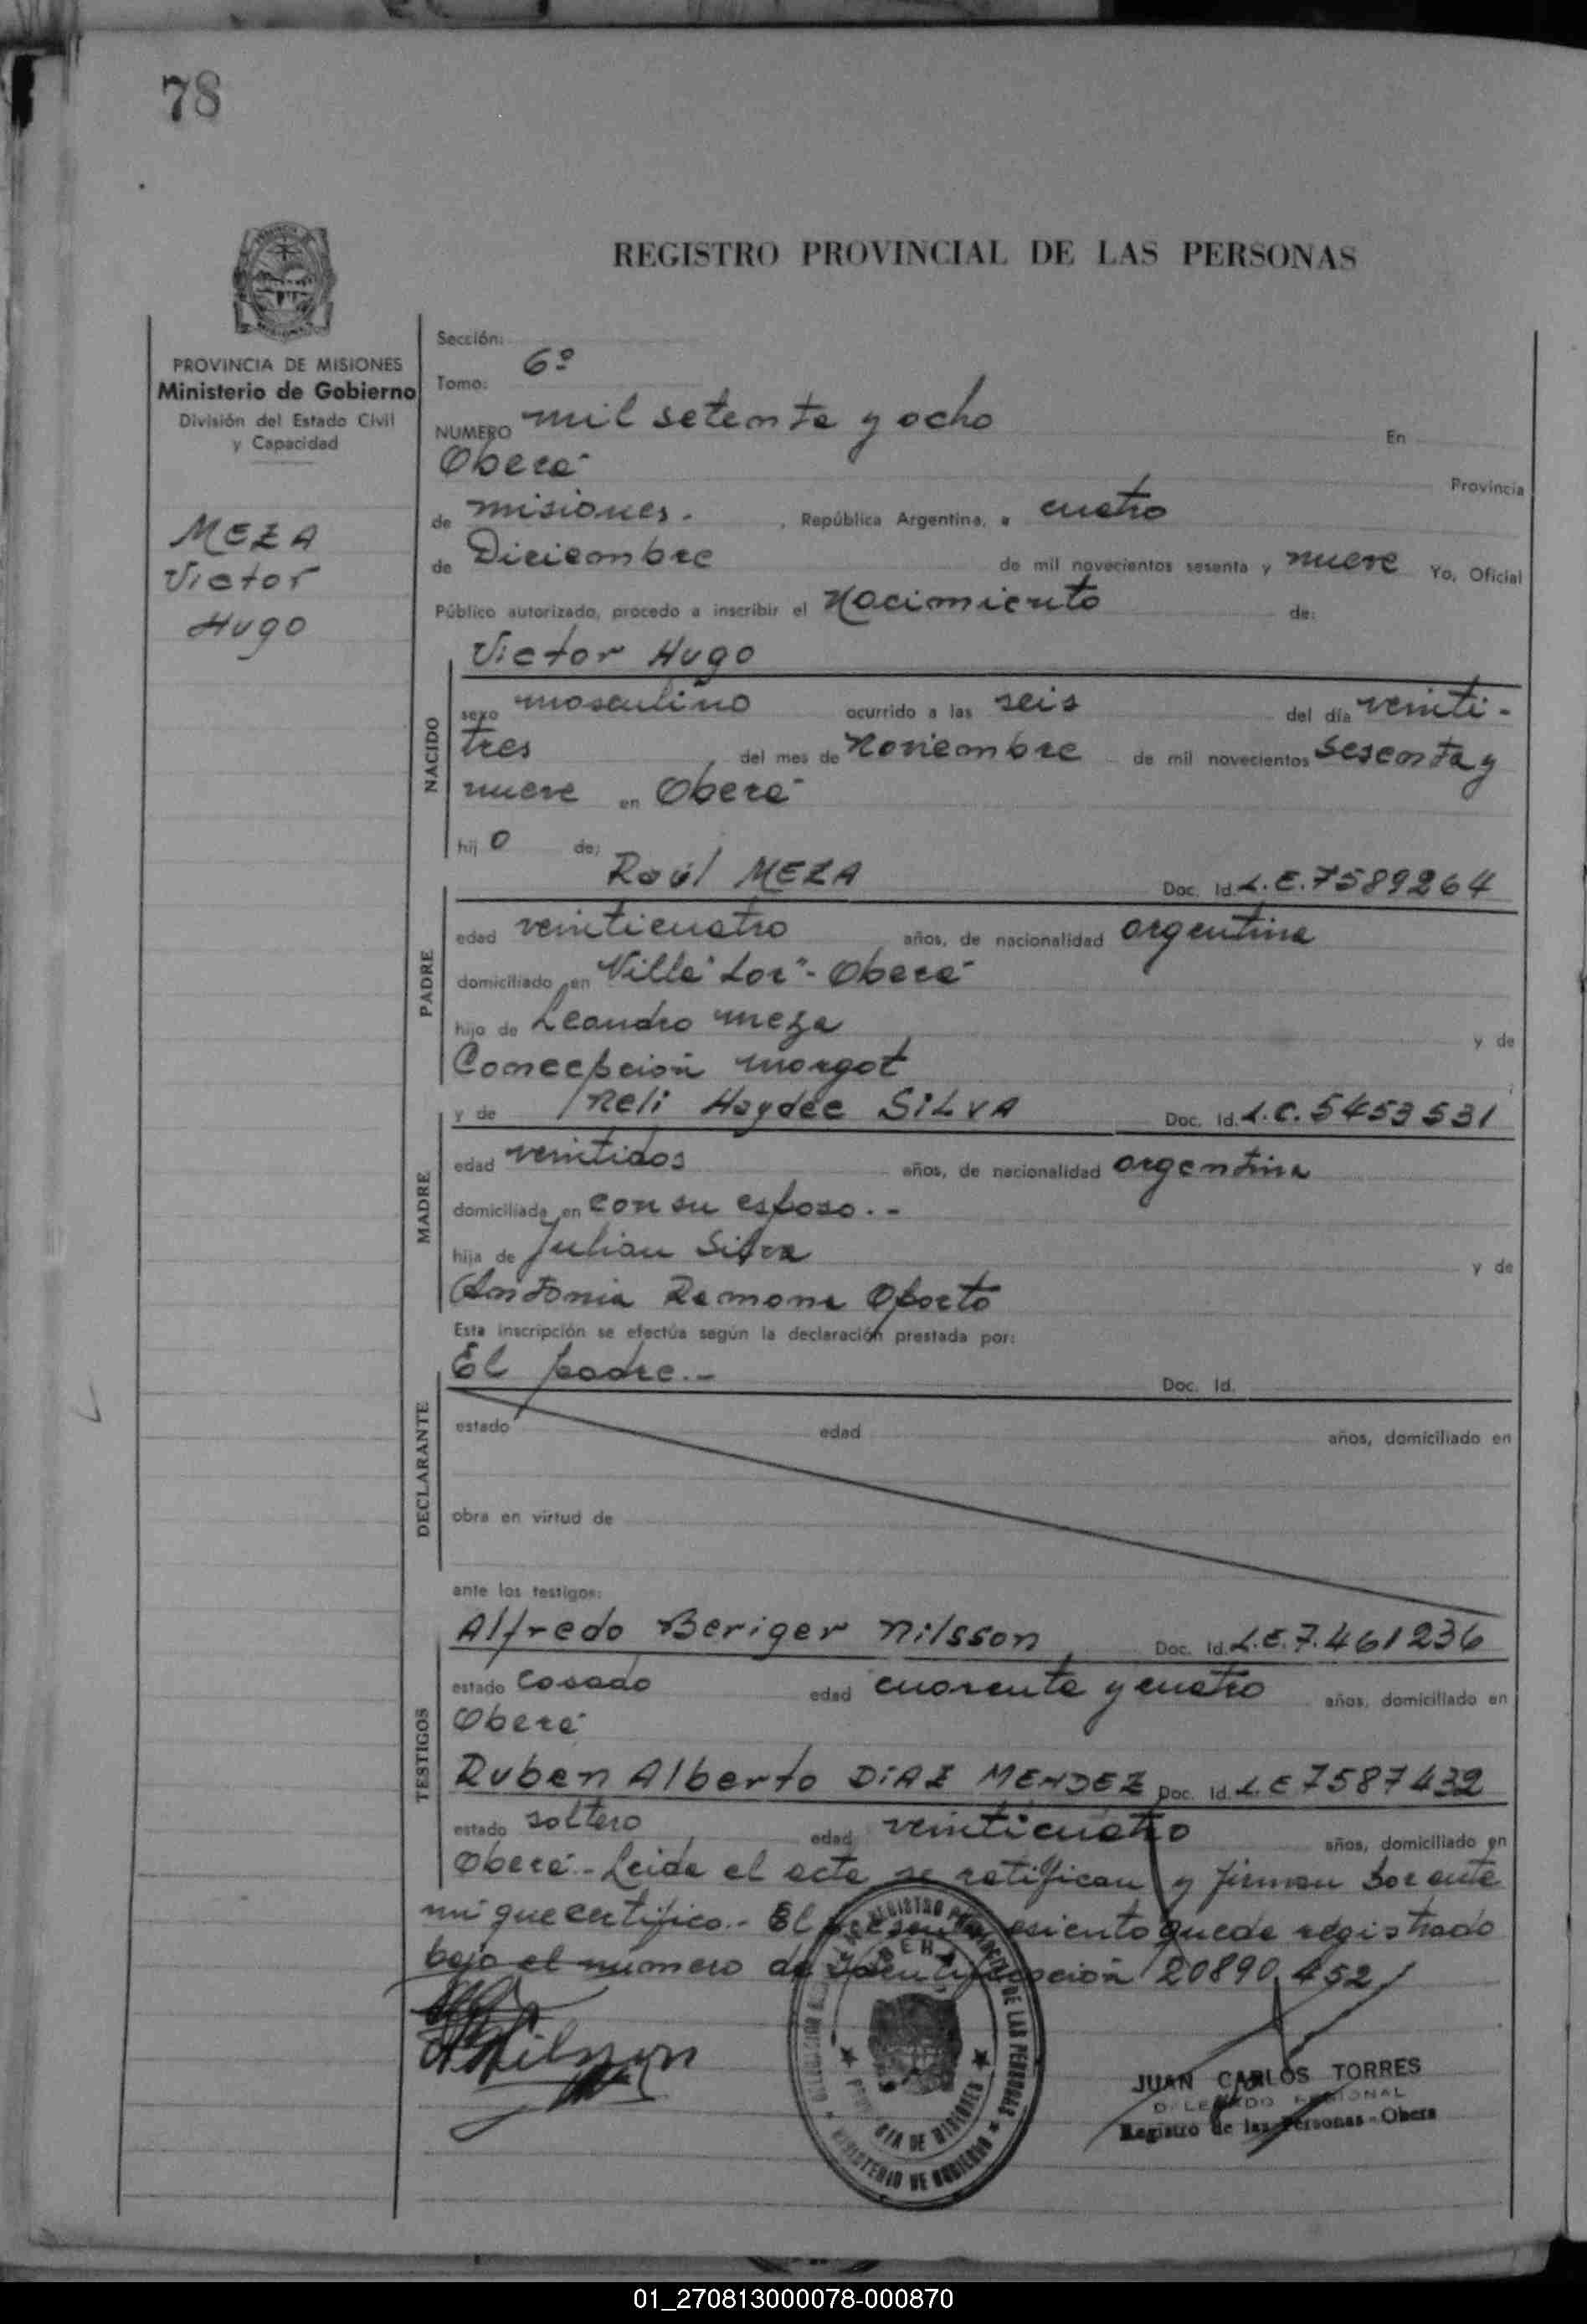 78
REGISTRO PROVINCIAL DE LAS PERSONAS
PROVINCIA DE MISIONES
Ministerio de Gobierno
División del Estado Civil
y Capacidad
MEZA
Victor
Hugo
Sección:
Tomo: 6º
NUMERO mil setenta y ocho En
Oberá Provincia
de misiones. , República Argentina, a cuatro
de Diciembre de mil novecientos sesenta y nueve Yo, Oficial
Público autorizado, procedo a inscribir el Nacimiento de:
Victor Hugo
NACIDO
sexo masculino ocurrido a las seis del día veinti-
tres del mes de Noviembre de mil novecientos sesenta y
nueve en Oberá
hij o de:
Raúl MEZA Doc. Id. L.E. 7589264
PADRE
edad veinticuatro años, de nacionalidad argentina
domiciliado en Villa "Lor" - Oberá
hijo de Leandro meza y de
Concepción margot
y de Neli Haydée SILVA Doc. Id. L.C. 5453531
MADRE
edad veintidos años, de nacionalidad argentina
domiciliada en con su esposo.-
hija de Julian Silva y de
Antonia Ramona Oporto
Esta inscripción se efectúa según la declaración prestada por:
El padre.- Doc. Id.
DECLARANTE
estado edad años, domiciliado en
obra en virtud de
ante los testigos:
Alfredo Beriger Nilsson Doc. Id. L.E. 7.461236
TESTIGOS
estado casado edad cuarenta y cuatro años, domiciliado en
Oberá
Ruben Alberto DIAZ MENDEZ Doc. Id. L.E 7587432
estado soltero edad veinticuatro años, domiciliado en
Oberá.- Leida el acta se ratifican y firman por ante
mi que certifico.- El presente asiento queda registrado
bajo el número de identificación 20890.452
Nilsson
REGISTRO PROVINCIAL DE LAS PERSONAS
MINISTERIO DE GOBIERNO
JUAN CARLOS TORRES
DELEGADO REGIONAL
Registro de las Personas - Obera
01_270813000078-000870